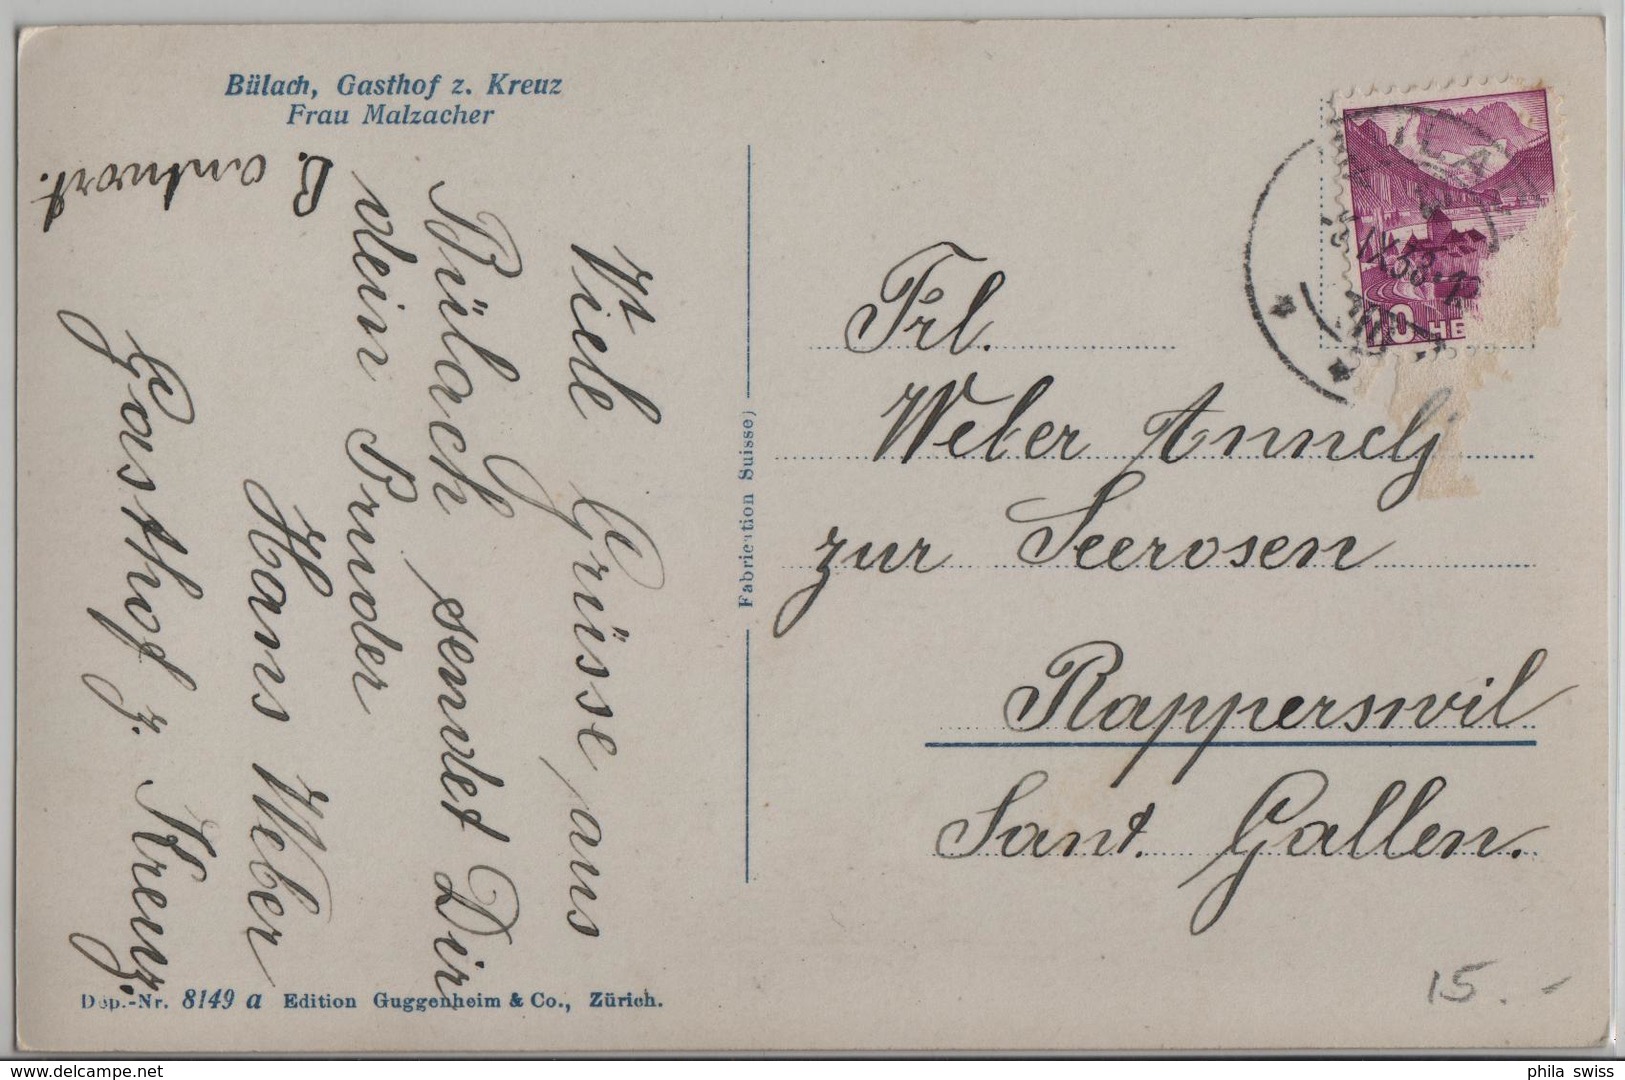 Bülach, Gasthof z. Kreuz
Frau Malzacher
B. antwort.
Viele Grüsse aus
Bülach sendet Dir
dein Bruder
Hans Weber
Gasthof z. Kreuz.
Fabrication Suisse)
IX.38
10 HE
Frl.
Weber Annely
zur Seerosen
Rapperswil
Sant. Gallen.
15.-
Dep.-Nr. 8149 a Edition Guggenheim & Co., Zürich.
phila swiss
delcampe.net